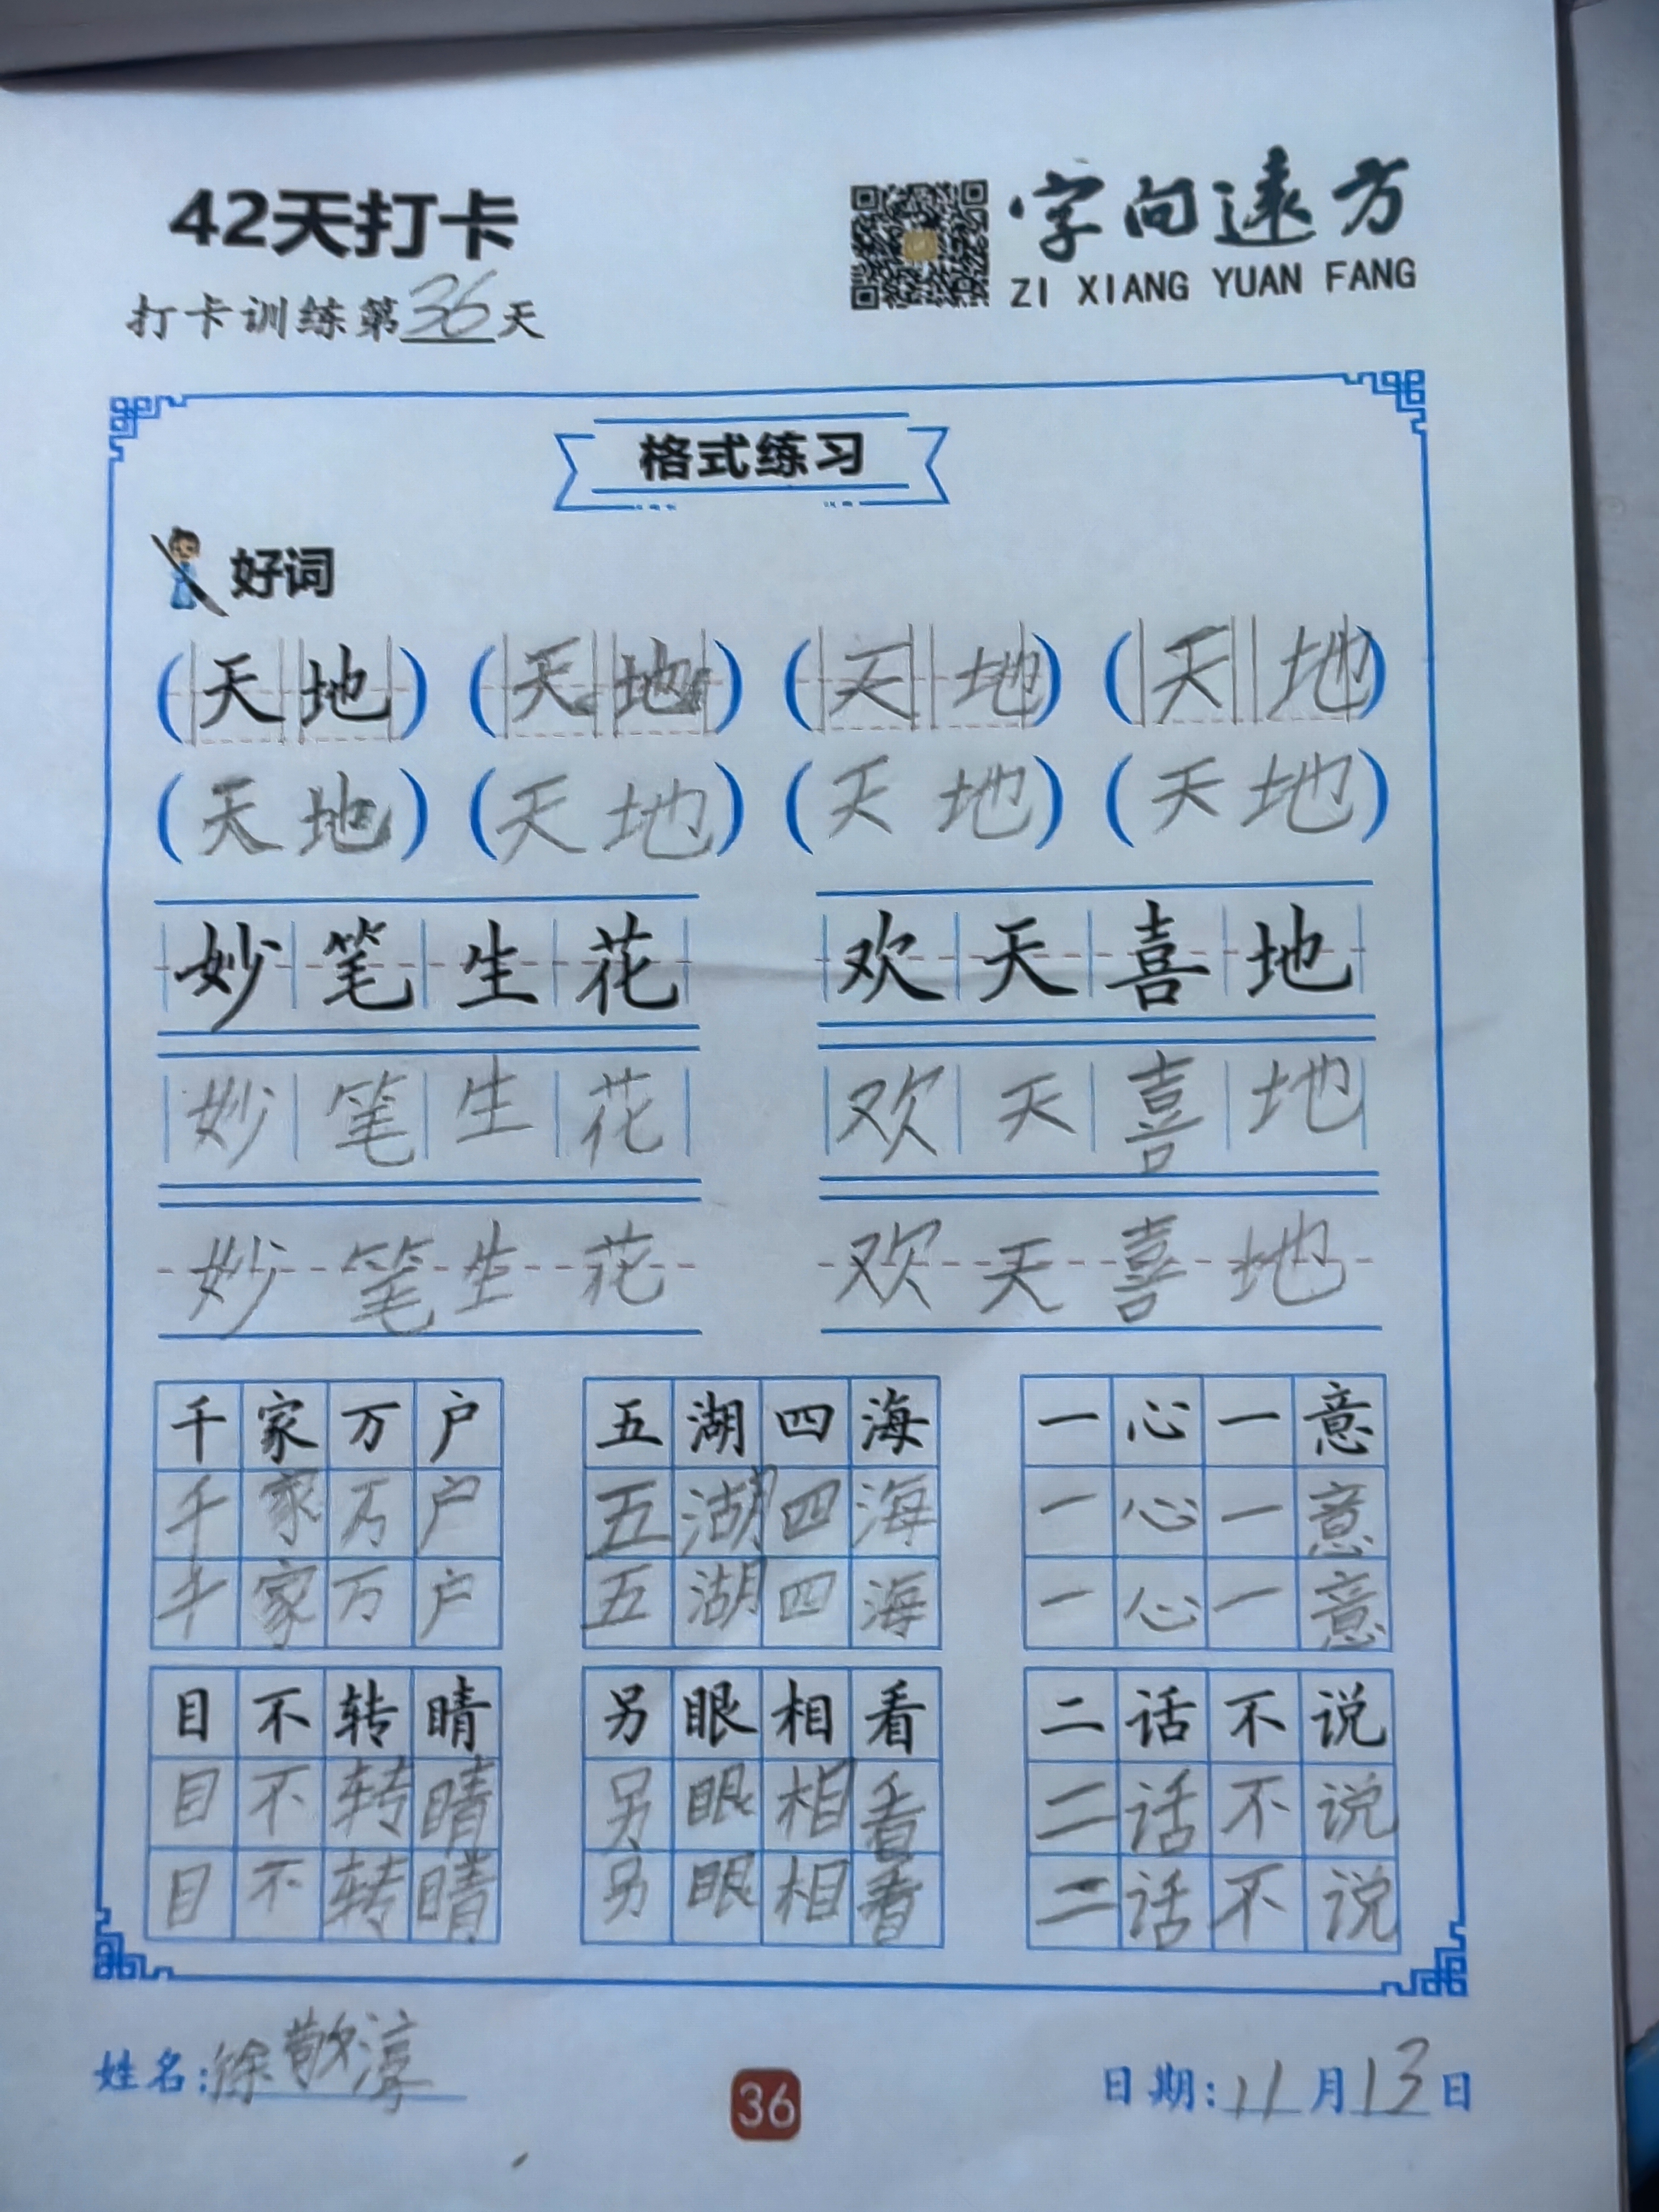 42天打卡
字向遠方
ZI XIANG YUAN FANG
打卡训练第36天
格式练习
好词
(天地) (天地) (天地) (天地)
(天地) (天地) (天地) (天地)
妙笔生花 欢天喜地
妙笔生花 欢天喜地
妙笔生花 欢天喜地
千家万户 五湖四海 一心一意
千家万户 五湖四海 一心一意
千家万户 五湖四海 一心一意
目不转睛 另眼相看 二话不说
目不转睛 另眼相看 二话不说
目不转睛 另眼相看 二话不说
姓名:徐敬淳
36
日期:11月13日